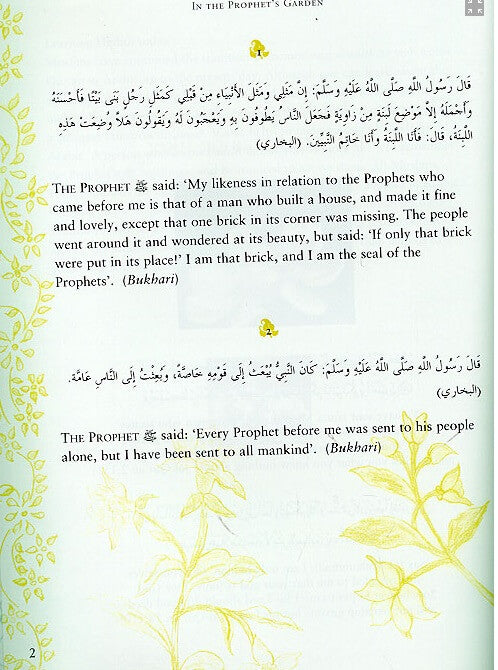 IN THE PROPHET'S GARDEN
1
قَالَ رَسُولُ اللَّهِ صَلَّى اللَّهُ عَلَيْهِ وَسَلَّمَ: إِنَّ مَثَلِي وَمَثَلَ الأَنْبِيَاءِ مِنْ قَبْلِي كَمَثَلِ رَجُلٍ بَنَى بَيْتًا فَأَحْسَنَهُ
وَأَجْمَلَهُ إِلاَّ مَوْضِعَ لَبِنَةٍ مِنْ زَاوِيَةٍ فَجَعَلَ النَّاسُ يَطُوفُونَ بِهِ وَيَعْجَبُونَ لَهُ وَيَقُولُونَ هَلاَّ وُضِعَتْ هَذِهِ
اللَّبِنَةُ، قَالَ: فَأَنَا اللَّبِنَةُ وَأَنَا خَاتِمُ النَّبِيِّينَ. (البخاري)
THE PROPHET ﷺ said: ‘My likeness in relation to the Prophets who
came before me is that of a man who built a house, and made it fine
and lovely, except that one brick in its corner was missing. The people
went around it and wondered at its beauty, but said: ‘If only that brick
were put in its place!’ I am that brick, and I am the seal of the
Prophets’. (Bukhari)
2
قَالَ رَسُولُ اللَّهِ صَلَّى اللَّهُ عَلَيْهِ وَسَلَّمَ: كَانَ النَّبِيُّ يُبْعَثُ إِلَى قَوْمِهِ خَاصَّةً، وَبُعِثْتُ إِلَى النَّاسِ عَامَّةً.
(البخاري)
THE PROPHET ﷺ said: ‘Every Prophet before me was sent to his people
alone, but I have been sent to all mankind’. (Bukhari)
2